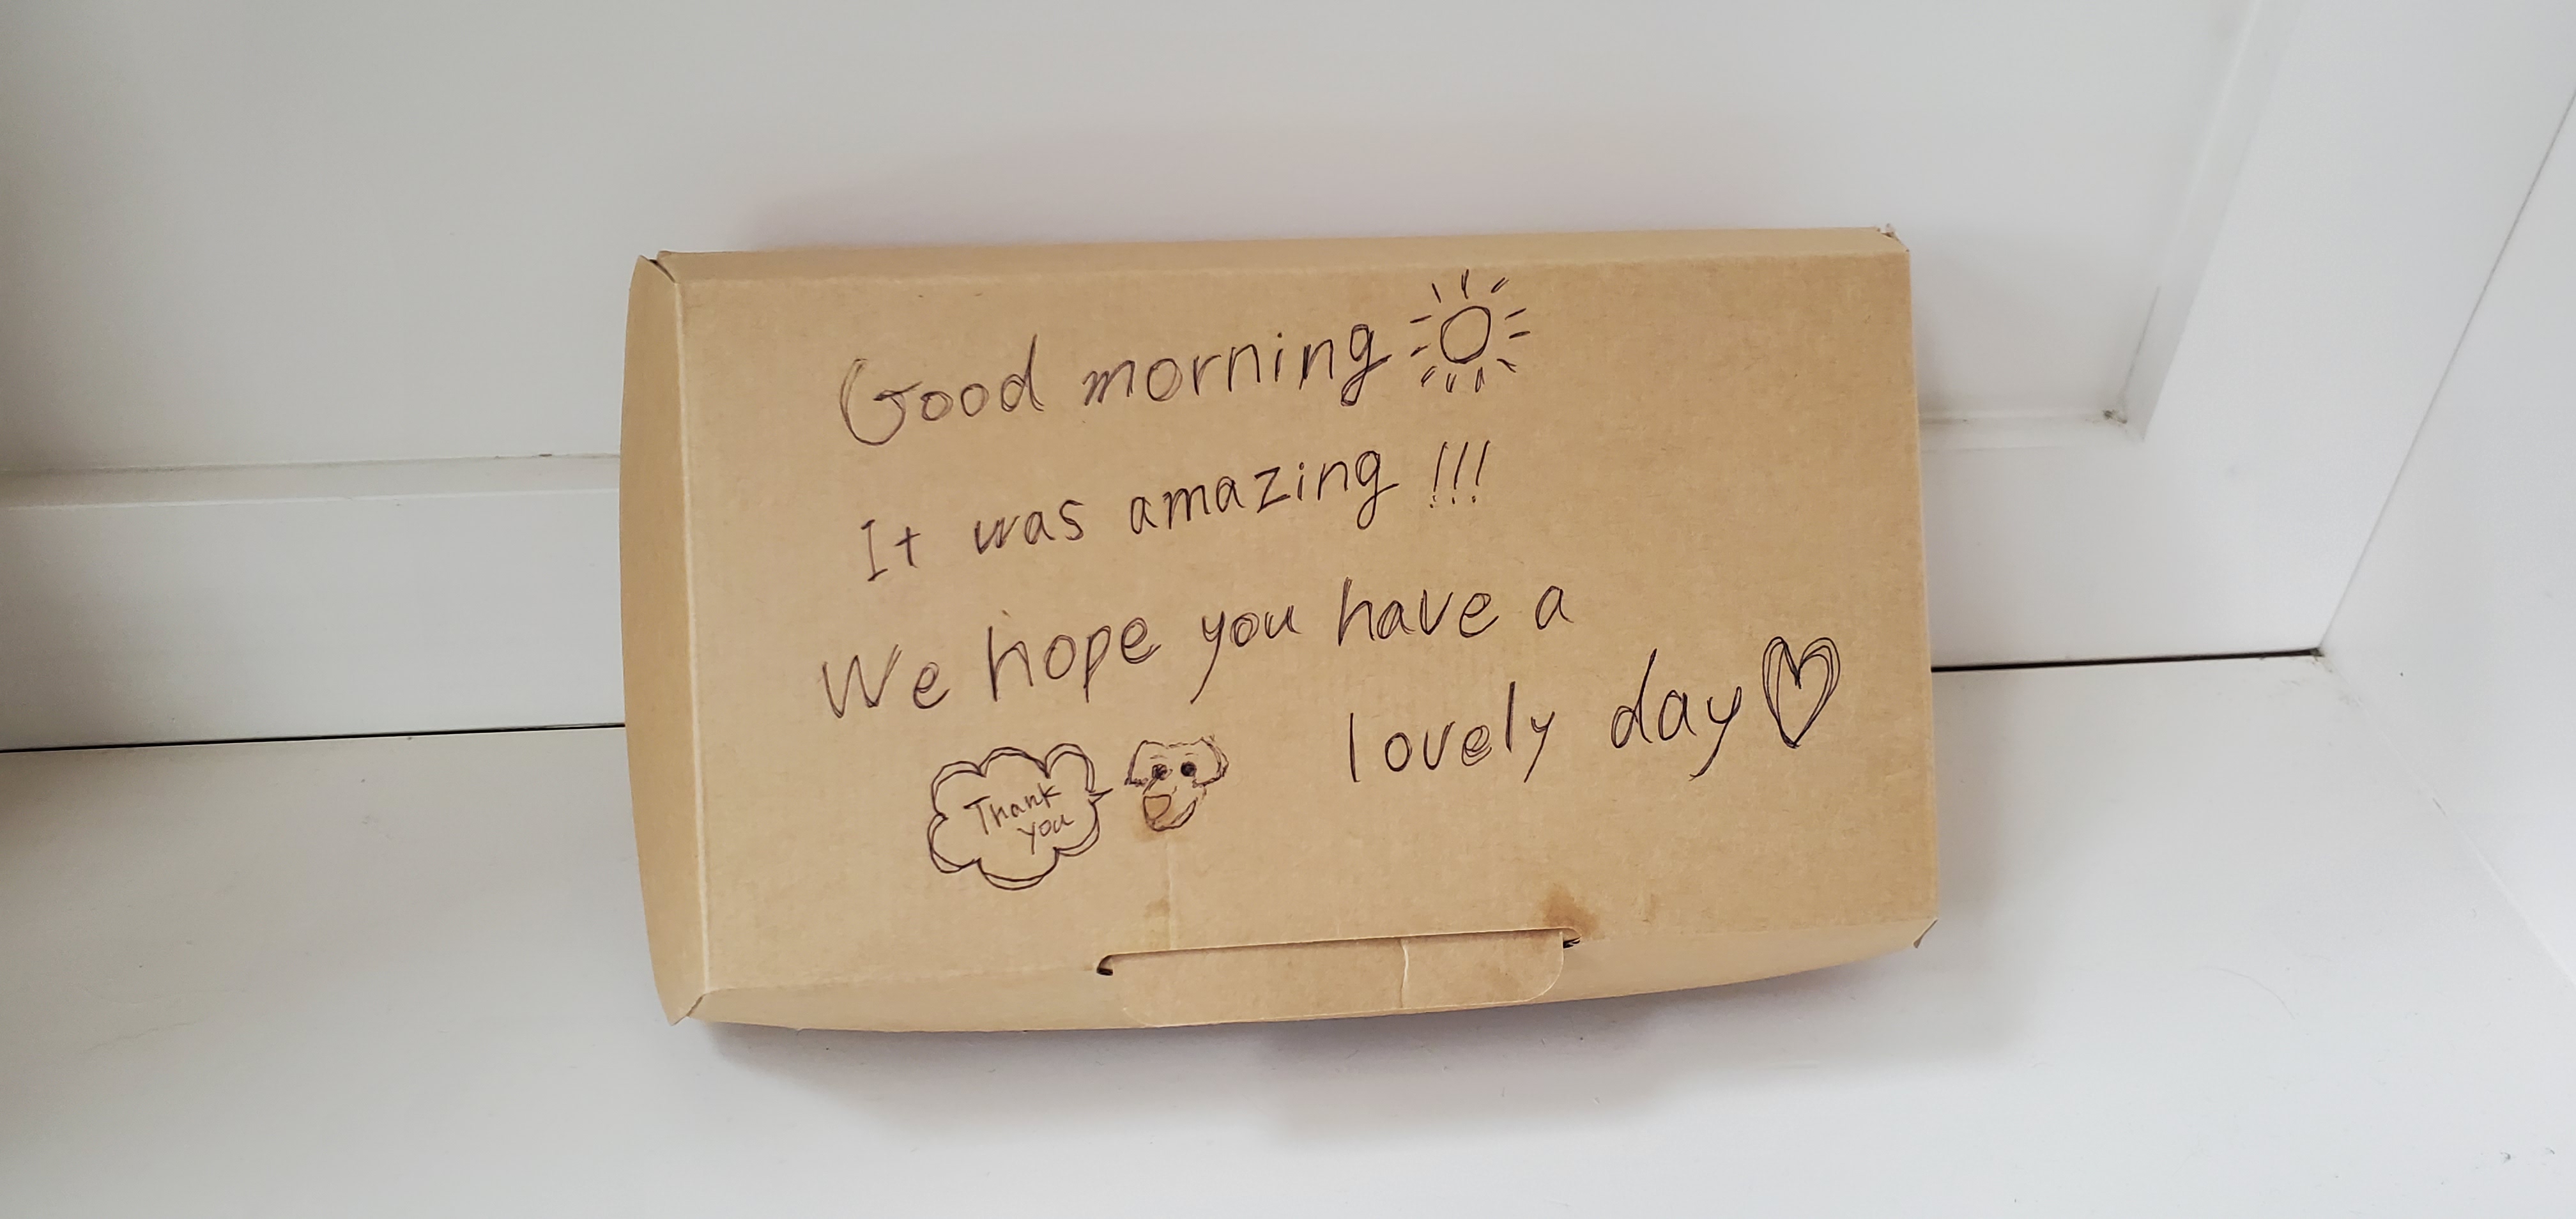 Good morning
It was amazing !!!
We hope you have a
lovely day
Thank
you